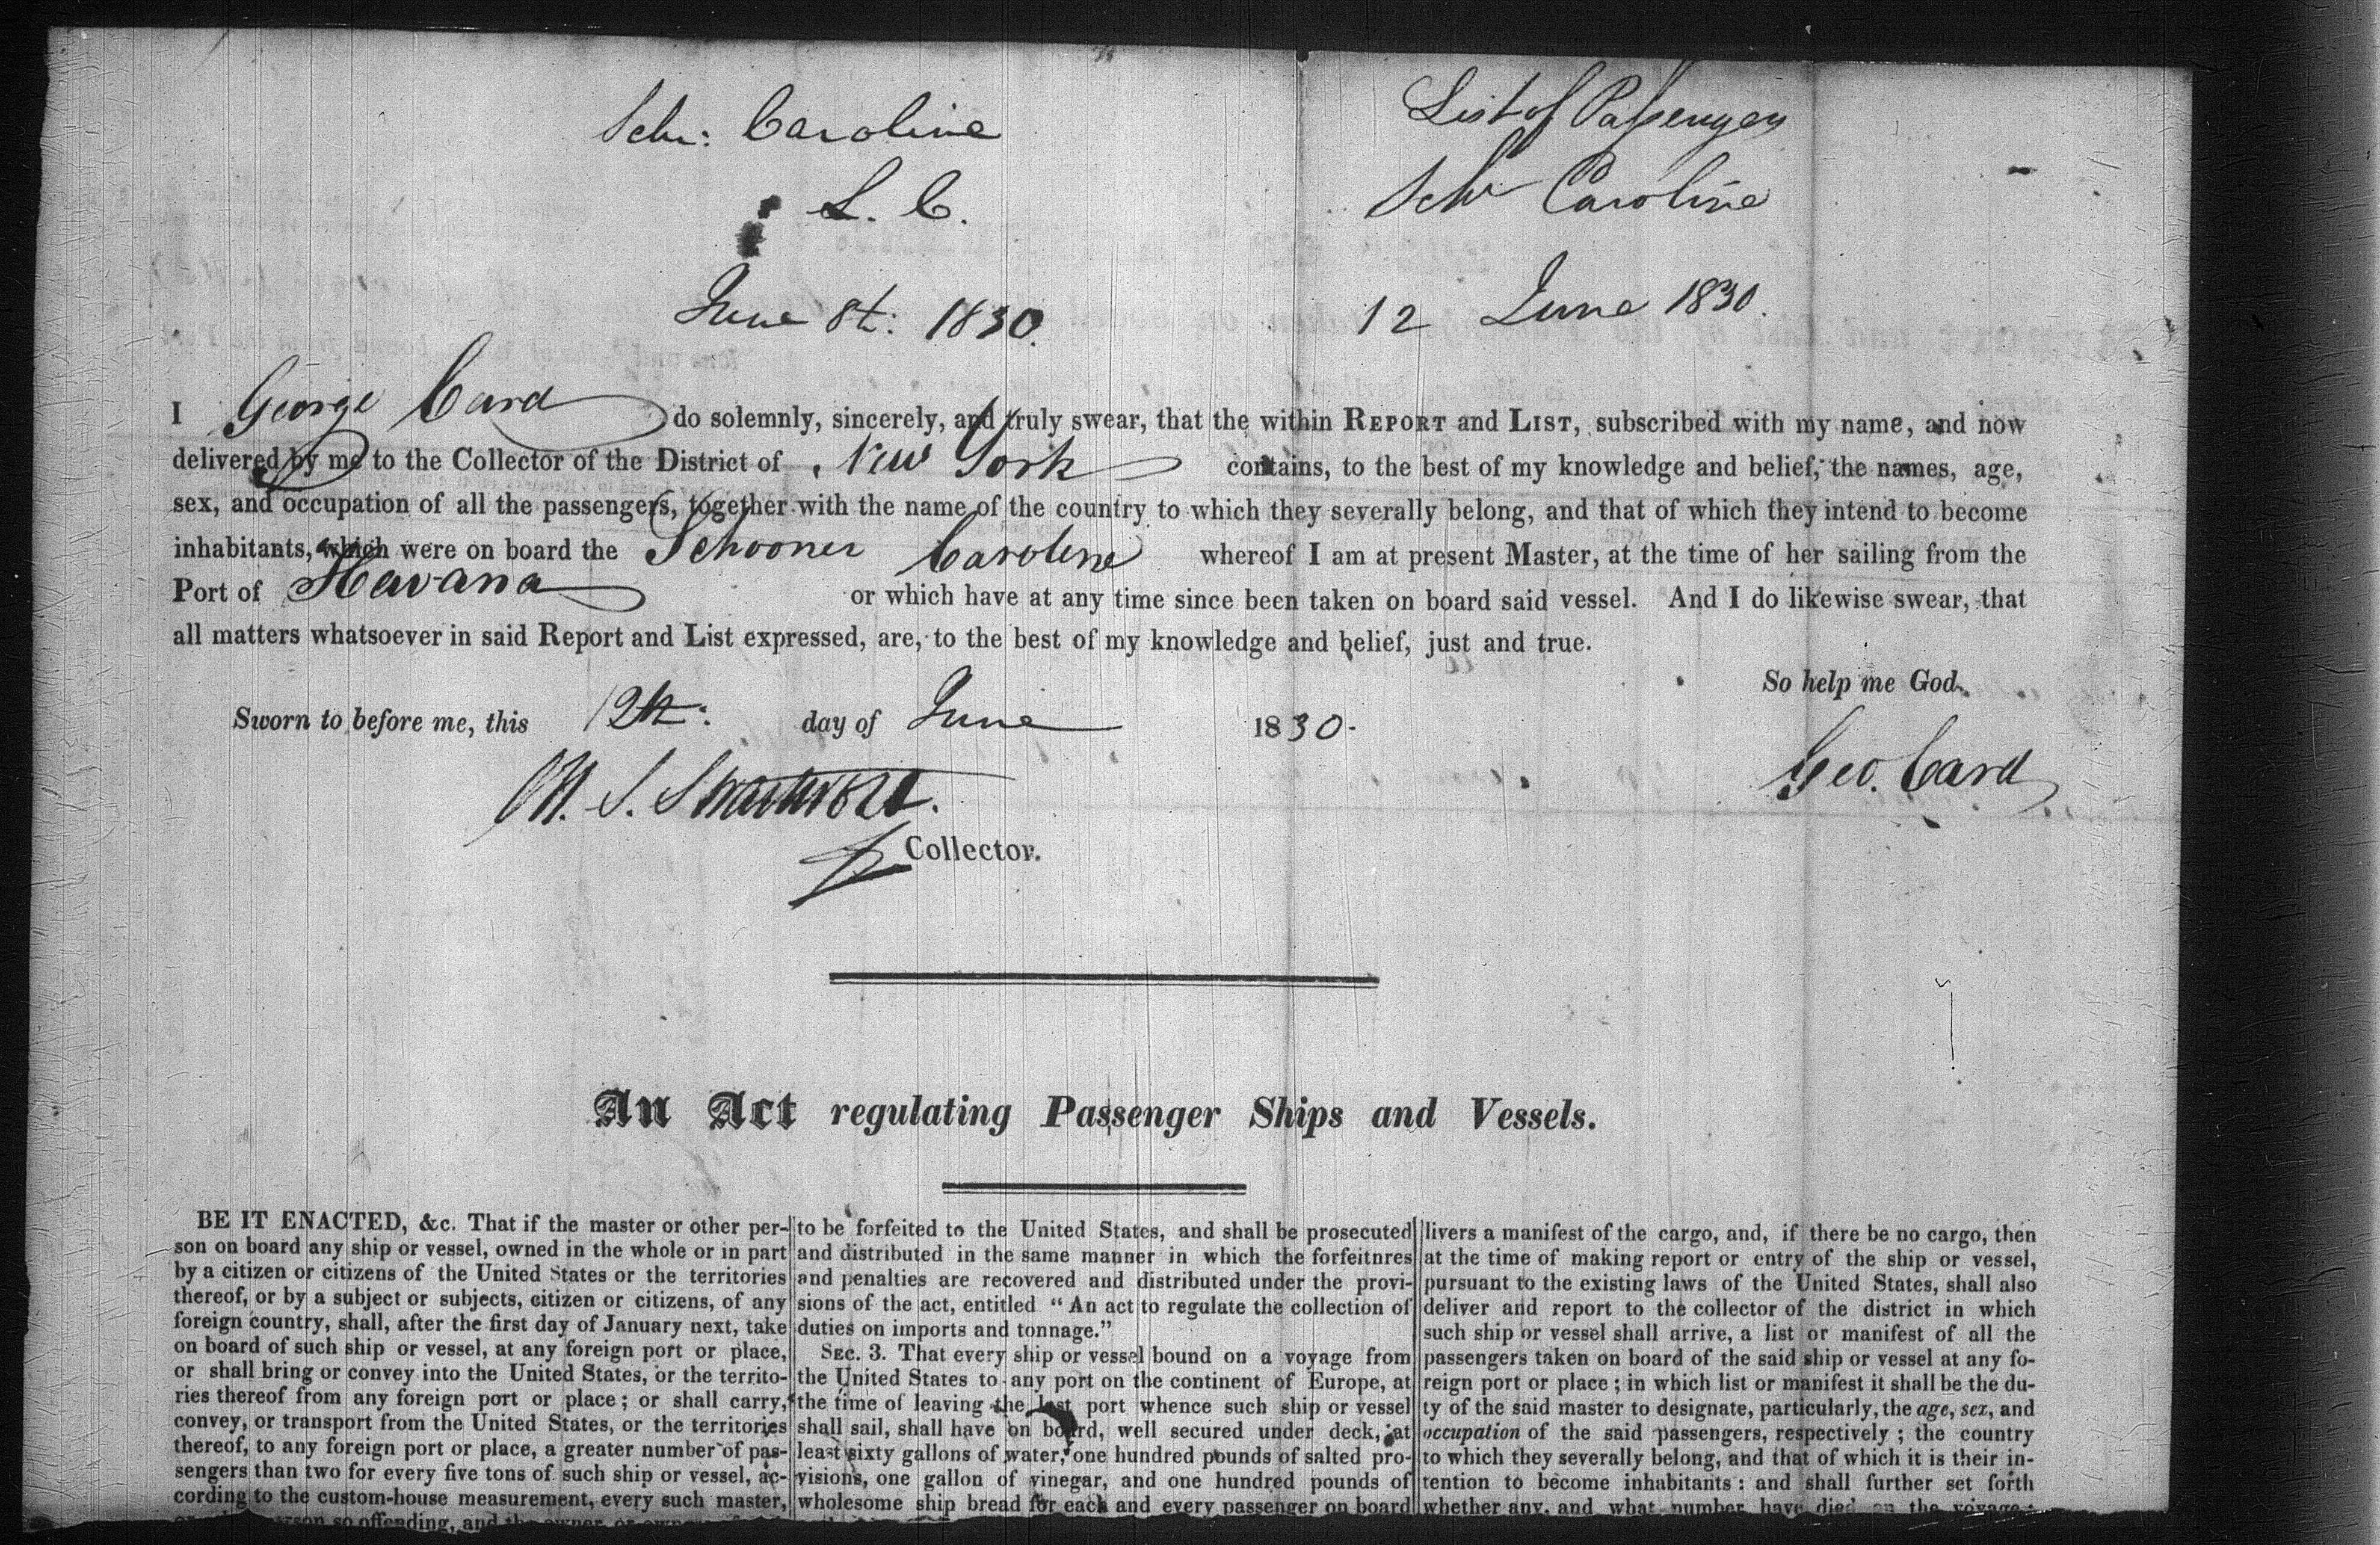 Schr: Caroline
L. C.
June 8t: 1830.
List of Passengers
Schr Caroline
12 June 1830.
I George Card do solemnly, sincerely, and truly swear, that the within REPORT and LIST, subscribed with my name, and now
delivered by me to the Collector of the District of New York contains, to the best of my knowledge and belief, the names, age,
sex, and occupation of all the passengers, together with the name of the country to which they severally belong, and that of which they intend to become
inhabitants, which were on board the Schooner Caroline whereof I am at present Master, at the time of her sailing from the
Port of Havana or which have at any time since been taken on board said vessel. And I do likewise swear, that
all matters whatsoever in said Report and List expressed, are, to the best of my knowledge and belief, just and true.
So help me God.
Sworn to before me, this 12th: day of June 1830.
Geo. Card
M. S. Swartwout.
Collector.
An Act regulating Passenger Ships and Vessels.
BE IT ENACTED, &c. That if the master or other per-
son on board any ship or vessel, owned in the whole or in part
by a citizen or citizens of the United States or the territories
thereof, or by a subject or subjects, citizen or citizens, of any
foreign country, shall, after the first day of January next, take
on board of such ship or vessel, at any foreign port or place,
or shall bring or convey into the United States, or the territo-
ries thereof from any foreign port or place; or shall carry,
convey, or transport from the United States, or the territories
thereof, to any foreign port or place, a greater number of pas-
sengers than two for every five tons of such ship or vessel, ac-
cording to the custom-house measurement, every such master,
person so offending, and the owner or
to be forfeited to the United States, and shall be prosecuted
and distributed in the same manner in which the forfeitnres
and penalties are recovered and distributed under the provi-
sions of the act, entitled "An act to regulate the collection of
duties on imports and tonnage."
SEC. 3. That every ship or vessel bound on a voyage from
the United States to any port on the continent of Europe, at
the time of leaving the last port whence such ship or vessel
shall sail, shall have on board, well secured under deck, at
least sixty gallons of water, one hundred pounds of salted pro-
visions, one gallon of vinegar, and one hundred pounds of
wholesome ship bread for each and every passenger on board
livers a manifest of the cargo, and, if there be no cargo, then
at the time of making report or entry of the ship or vessel,
pursuant to the existing laws of the United States, shall also
deliver and report to the collector of the district in which
such ship or vessel shall arrive, a list or manifest of all the
passengers taken on board of the said ship or vessel at any fo-
reign port or place; in which list or manifest it shall be the du-
ty of the said master to designate, particularly, the age, sex, and
occupation of the said passengers, respectively; the country
to which they severally belong, and that of which it is their in-
tention to become inhabitants: and shall further set forth
whether any, and what number have died on the voyage;